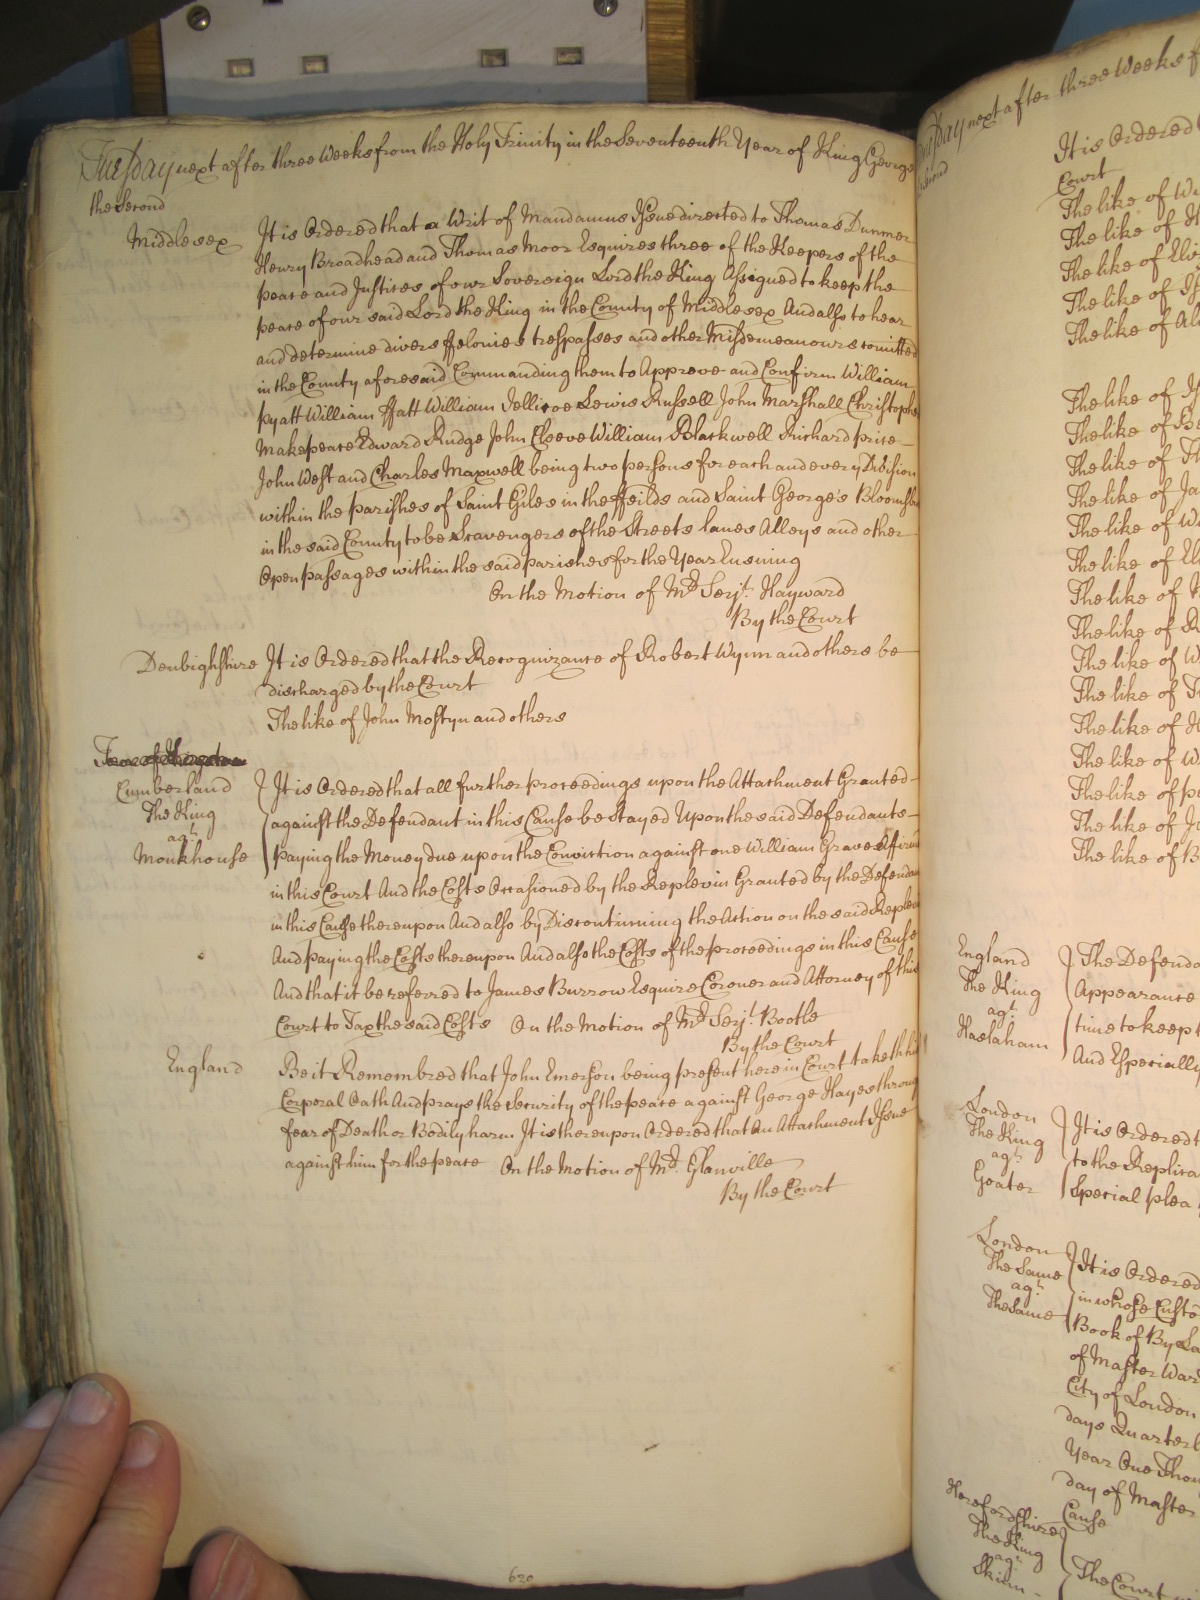 Tuesday next after three Weeks from the Holy Trinity in the Seventeenth Year of King George
the Second
Middlesex
It is Ordered that a Writ of Mandamus Issue directed to Thomas Dummer
Henry Broadhead and Thomas Moor Esquires three of the Keepers of the
peace and Justices of our Sovereign Lord the King Assigned to keep the
peace of our said Lord the King in the County of Middlesex And also to hear
and determine divers ffelonies trespasses and other Misdemeanours comitted
in the County aforesaid Commanding them to Approve and Confirm William
pyatt William ffatt William Jellicoe Lewis Russell John Marshall Christophe
Makepeace Edward Rudge John Cleeve William Blackwell Richard price
John West and Charles Maxwell being two persons for each and every Division
within the parishes of Saint Giles in the ffeilds and Saint George's Bloomsbu
in the said County to be Scavengers of the Streets lanes Alleys and other
Open passages within the said parishes for the Year Ensuing
On the Motion of Mr. Serjt. Hayward
By the Court
Denbighshire It is Ordered that the Recognizance of Robert Wynn and others be
discharged by the Court
The like of John Mostyn and others
Cumberland
The King
agt.
Monkhouse
It is Ordered that all further proceedings upon the Attachment Granted
against the Defendant in this Cause be Stayed Upon the said Defendants
paying the Money due upon the Conviction against one William Grave Affirm
in this Court And the Costs Occasioned by the Replevin Granted by the Defendan
in this Cause thereupon And also by Discontinuing the Action on the said Replev
And paying the Costs thereupon And also the Costs of the proceedings in this Cause
And that it be referred to James Burrow Esquire Coroner and Attorney of this
Court to Tax the said Costs On the Motion of Mr. Serjt. Bootle
By the Court
England
Be it Remembred that John Emerson being present here in Court taketh hi
Corporal Oath And prays the Security of the peace against George Hayes throug
fear of Death or Bodily harm It is thereupon Ordered that An Attachment Issue
against him for the peace On the Motion of Mr. Glanville
By the Court
620
day next after three Weeks f
It is Ordered
Court
The like of W
The like of H
The like of Eliz
The like of
The like of Al
The like of
The like of Be
The like of
The like of Ja
The like of W
The like of
The like of
The like of R
The like of W
The like of
The like of
The like of W
The like of pe
The like of
The like of B
England
The King
agt.
Haslaham
The Defenda
Appearance
time to keep t
And Especially
London
The King
agt.
Goater
It is Ordered t
to the Replica
Special plea
London
The Same
agt.
The Same
It is Ordered
in whose Custo
Book of By La
of Master War
City of London
days Quarterl
Year One Thou
day of Master
Cause
Herefordshire
The King
agt.
Skinn
The Court